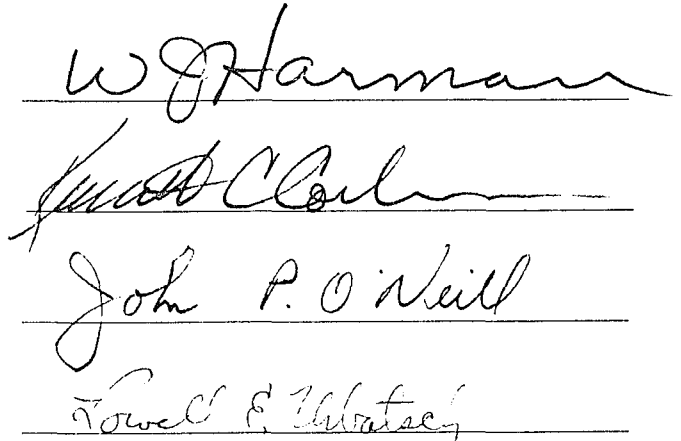 W J Harman
Kenneth C
John P. O'Neill
Lowell E. Urbatsch